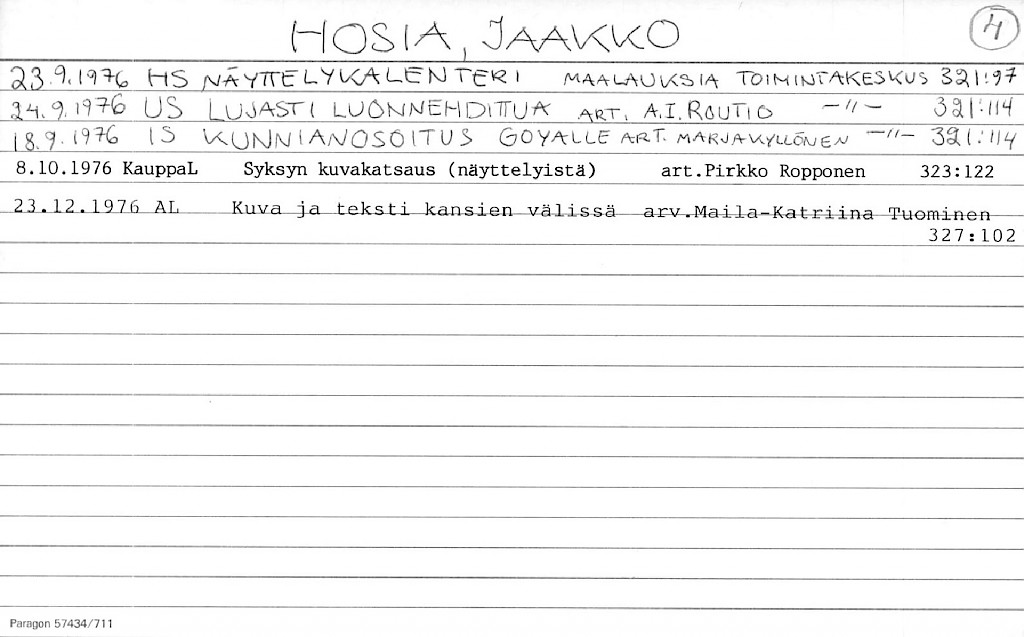 HOSIA, JAAKKO
4
23.9.1976 HS NÄYTTELYKALENTERI MAALAUKSIA TOIMINTAKESKUS 321:97
24.9.1976 US LUJASTI LUONNEHDITTUA ART. A.I. ROUTIO —"— 321:114
18.9.1976 IS KUNNIANOSOITUS GOYALLE ART. MARJA KYLLÖNEN —"— 321:114
8.10.1976 KauppaL Syksyn kuvakatsaus (näyttelyistä) art.Pirkko Ropponen 323:122
23.12.1976 AL Kuva ja teksti kansien välissä arv.Maila-Katriina Tuominen
327:102
Paragon 57434/711